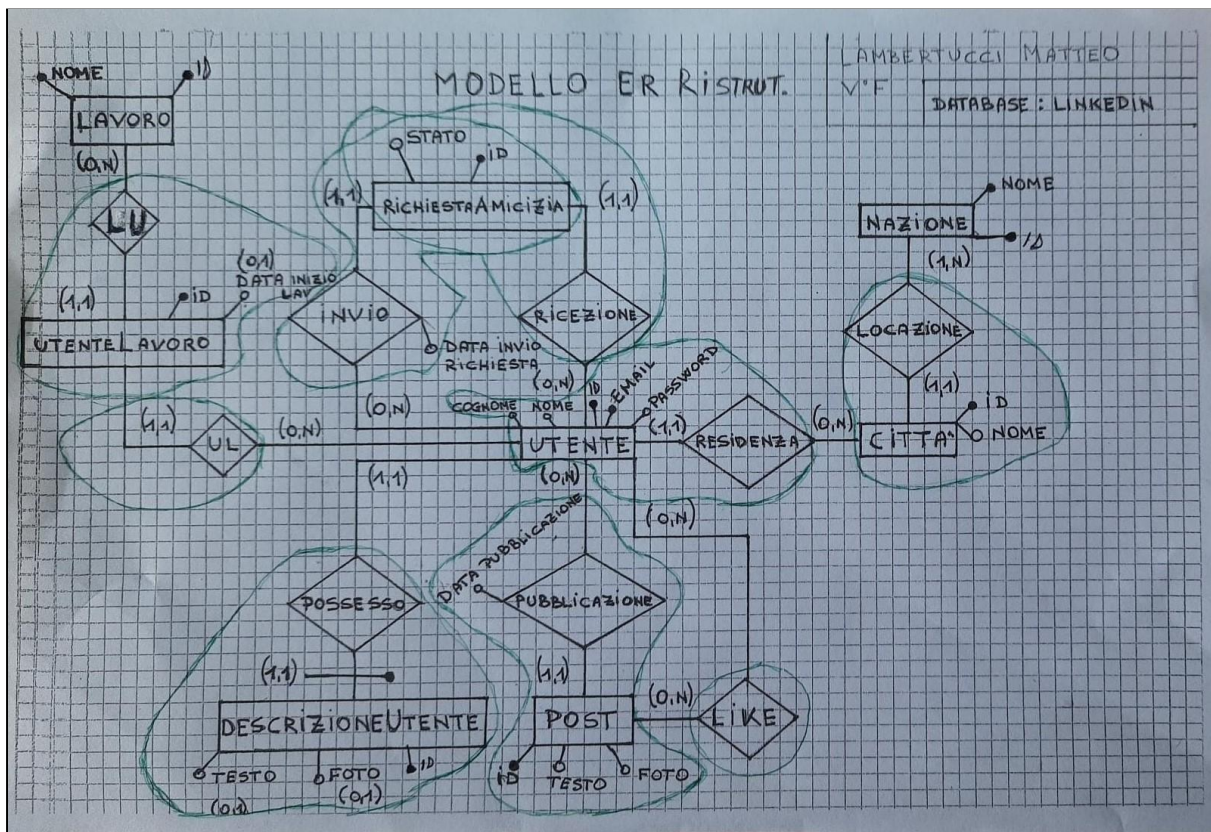 LAMBERTUCCI MATTEO
V°F
MODELLO ER RiSTRUT.
DATABASE: LINKEDIN
NOME
ID
LAVORO
(0,N)
LU
(1,1)
iD
(0,1)
DATA INIZIO
LAV
UTENTELAVORO
(1,1)
UL
(0,N)
STATO
iD
(1,1)
RICHIESTAAMICIZIA
(1,1)
iNVIO
DATA INVIO
RICHIESTA
RICEZIONE
(0,N)
(0,N)
COGNOME
NOME
ID
EMAIL
PASSWORD
UTENTE
(1,1)
RESIDENZA
(0,N)
NOME
NAZIONE
ID
(1,N)
LOCAZIONE
(1,1)
iD
CITTA'
NOME
(1,1)
(0,N)
(0,N)
POSSESSO
(1,1)
DESCRIZIONEUTENTE
TESTO
(0,1)
FOTO
(0,1)
ID
DATA PUBBLICAZIONE
PUBBLICAZIONE
(1,1)
POST
iD
TESTO
FOTO
(0,N)
LIKE